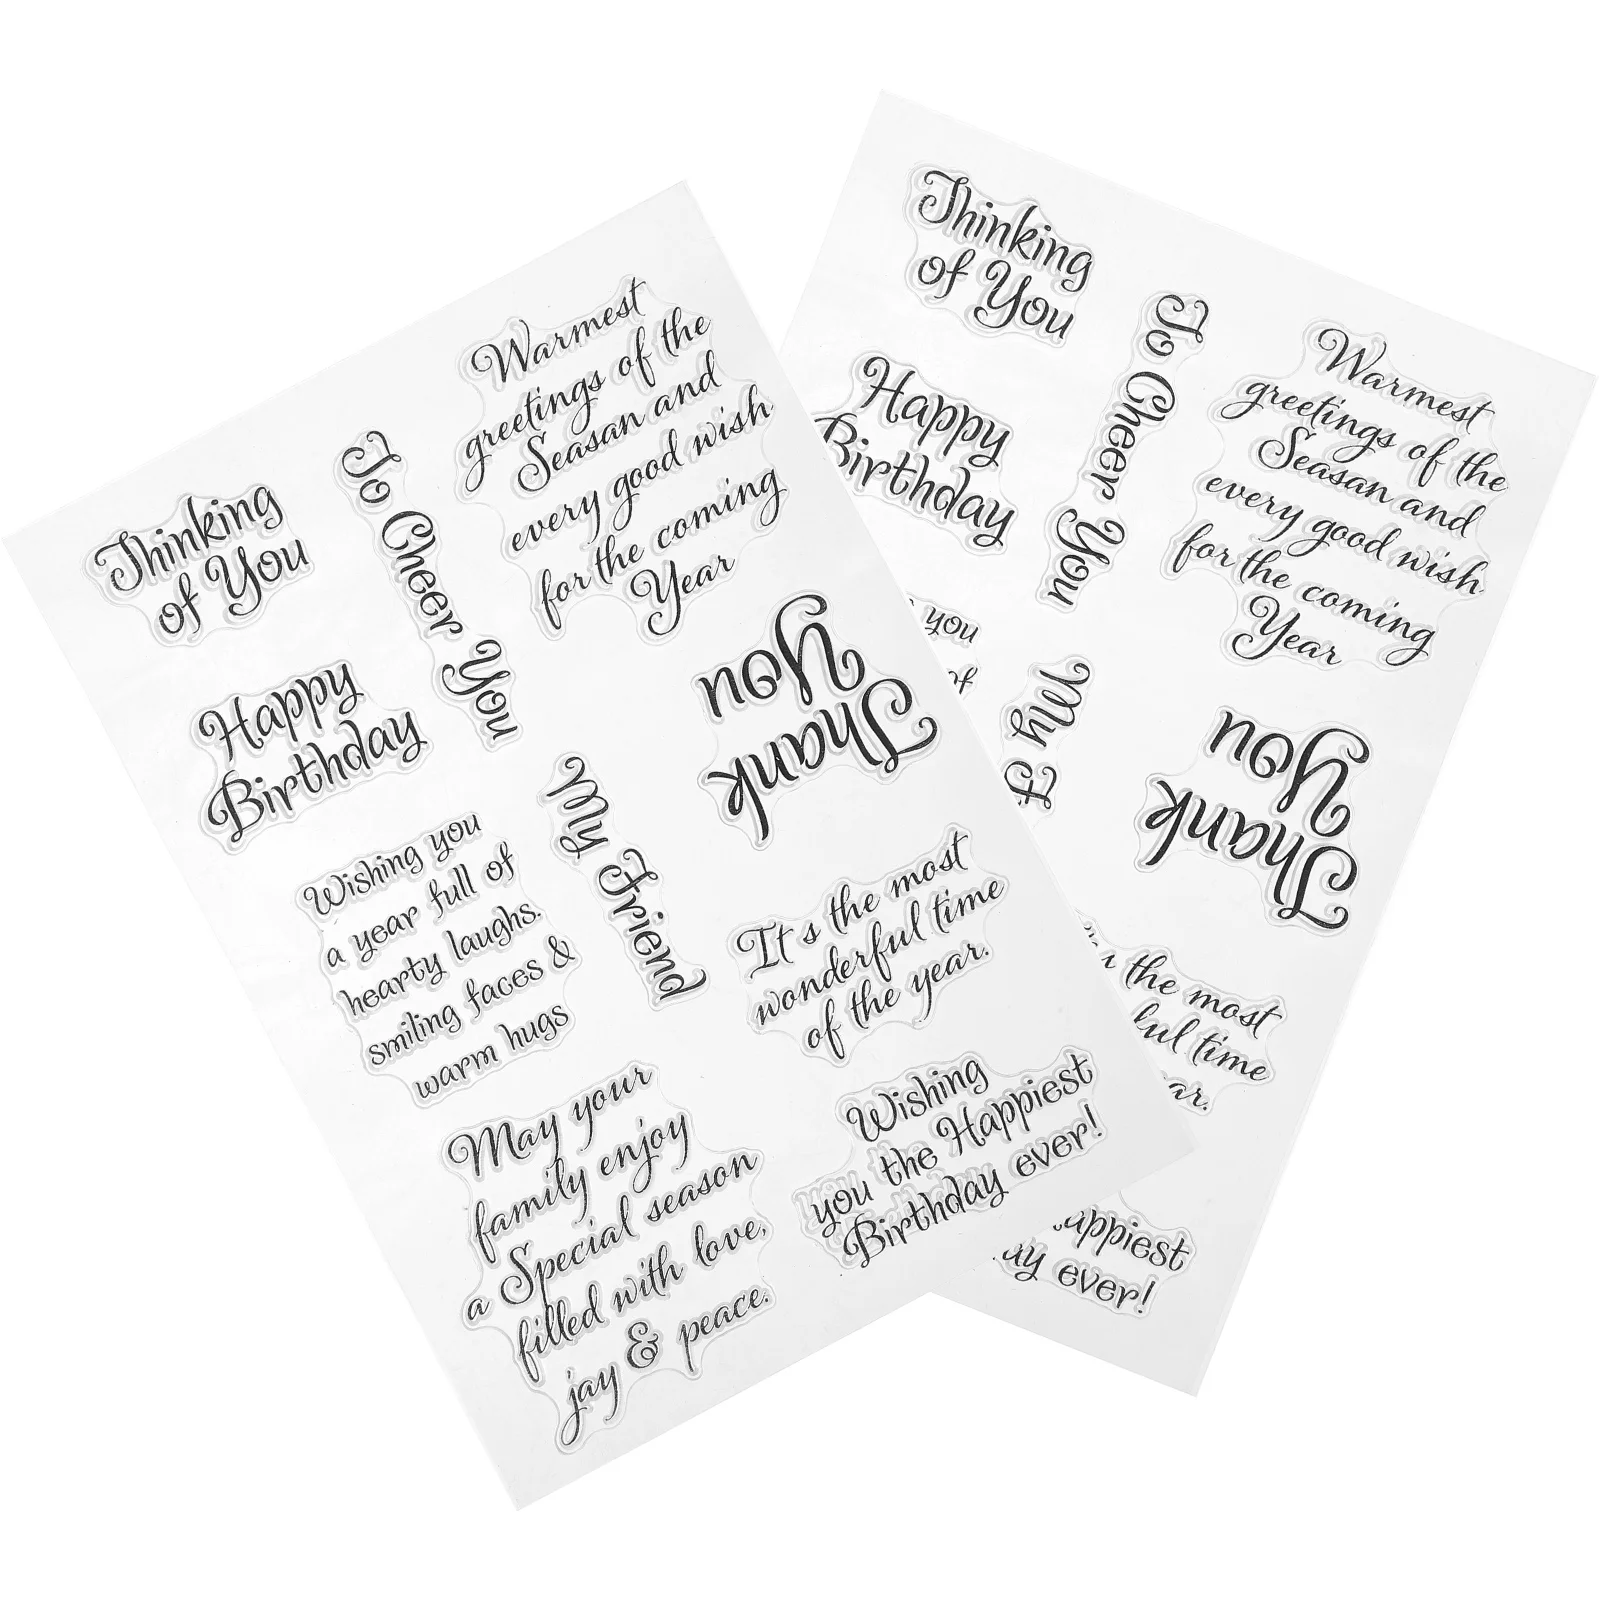 Thinking
of You
To Cheer You
Warmest
greetings of the
Seasan and
every good wish
for the coming
Year
Happy
Birthday
Thank
You
My Friend
Wishing you
a year full of
hearty laughs.
smiling faces &
warm hugs
It's the most
wonderful time
of the year.
May your
family enjoy
a Special season
filled with love,
jay & peace.
Wishing
you the Happiest
Birthday ever!
Thinking
of You
To Cheer You
Warmest
greetings of the
Seasan and
every good wish
for the coming
Year
Happy
Birthday
you
of
My F
Thank
You
the most
ful time
ar.
appiest
ay ever!